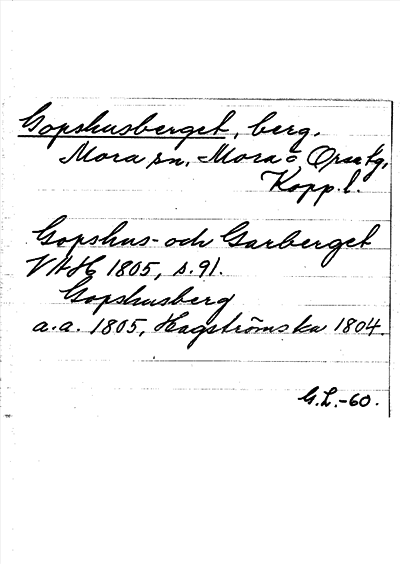 Gopshusberget, berg.
Mora sn. Mora o Orsa tg,
Kopp. l.
Gopshus- och Garberget
VAH 1805, s. 91.
Gopshusberg
a.a. 1805, Hagströms ka 1804.
G.L.-60.